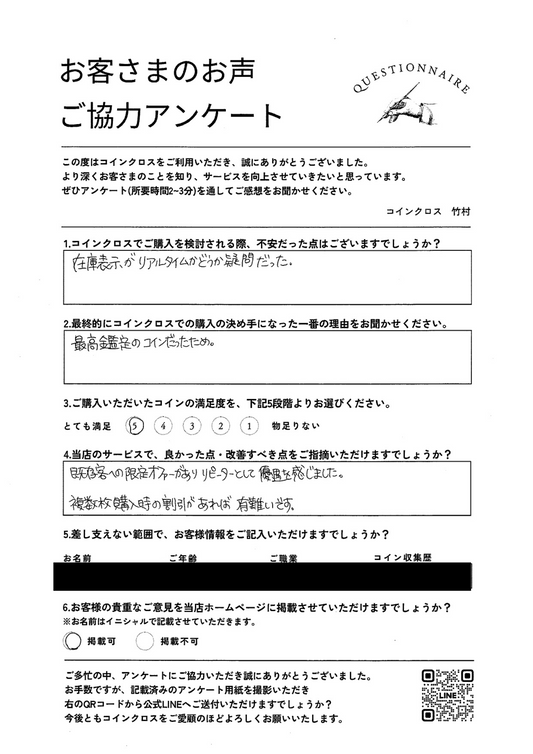 お客さまのお声
ご協力アンケート
QUESTIONNAIRE
この度はコインクロスをご利用いただき、誠にありがとうございました。
より深くお客さまのことを知り、サービスを向上させていきたいと思っています。
ぜひアンケート(所要時間2~3分)を通してご感想をお聞かせください。
コインクロス 竹村
1.コインクロスでご購入を検討される際、不安だった点はございますでしょうか？
在庫表示がリアルタイムかどうか疑問だった。
2.最終的にコインクロスでの購入の決め手になった一番の理由をお聞かせください。
最高鑑定のコインだったため。
3.ご購入いただいたコインの満足度を、下記5段階よりお選びください。
とても満足 5 4 3 2 1 物足りない
4.当店のサービスで、良かった点・改善すべき点をご指摘いただけますでしょうか？
既存客への限定オファーがありリピーターとして優遇を感じました。
複数枚購入時の割引があれば有難いです。
5.差し支えない範囲で、お客様情報をご記入いただけますでしょうか？
お名前 ご年齢 ご職業 コイン収集歴
6.お客様の貴重なご意見を当店ホームページに掲載させていただけますでしょうか？
※お名前はイニシャルで記載させていただきます。
掲載可 掲載不可
ご多忙の中、アンケートにご協力いただき誠にありがとうございました。
お手数ですが、記載済みのアンケート用紙を撮影いただき
右のQRコードから公式LINEへご送付いただけますでしょうか？
今後ともコインクロスをご愛顧のほどよろしくお願いいたします。
LINE